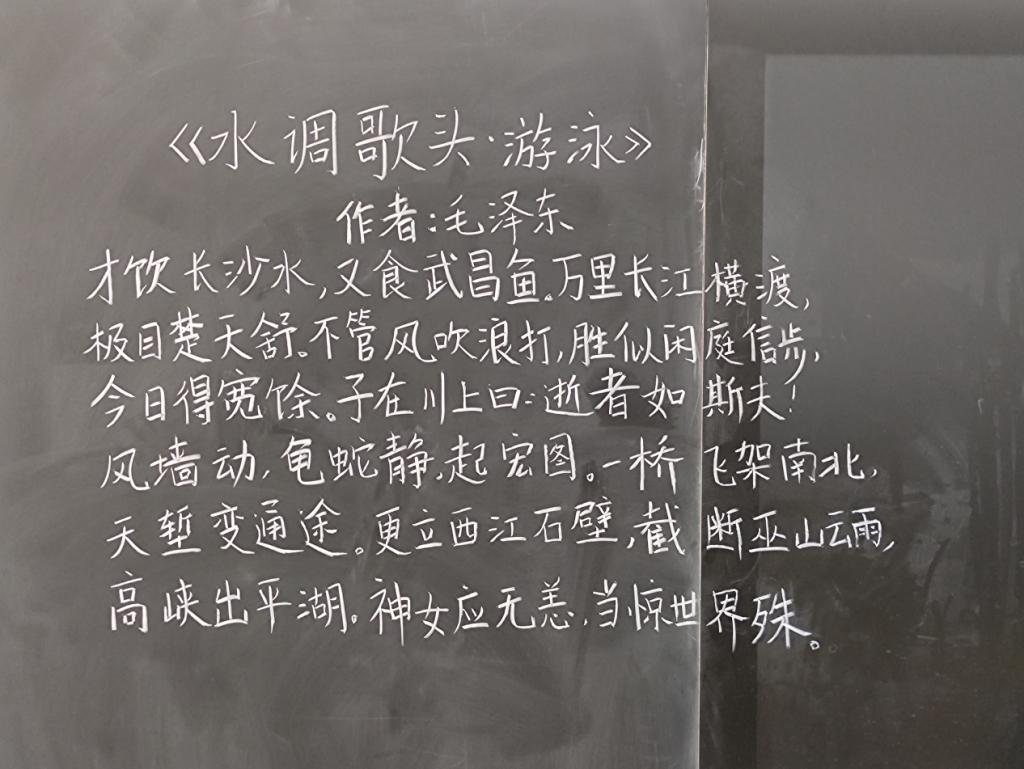 《水调歌头·游泳》
作者:毛泽东
才饮长沙水,又食武昌鱼。万里长江横渡,
极目楚天舒。不管风吹浪打,胜似闲庭信步,
今日得宽馀。子在川上曰:逝者如斯夫!
风墙动,龟蛇静,起宏图。一桥飞架南北,
天堑变通途。更立西江石壁,截断巫山云雨,
高峡出平湖。神女应无恙,当惊世界殊。